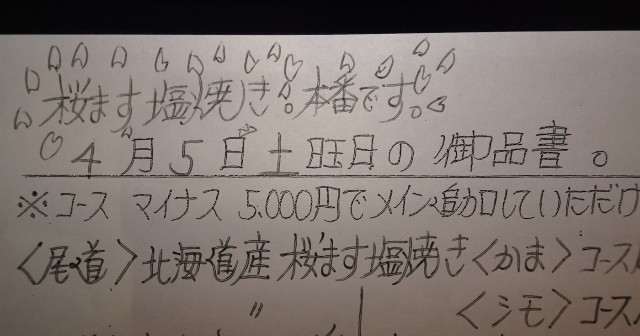 桜ます塩焼き。本番です。
4月5日土曜日の御品書。
※コース マイナス 5.000円でメイン追加していただけ
〈尾道〉北海道産 桜ます塩焼き〈かま〉コース
〃 〈シモ〉コース